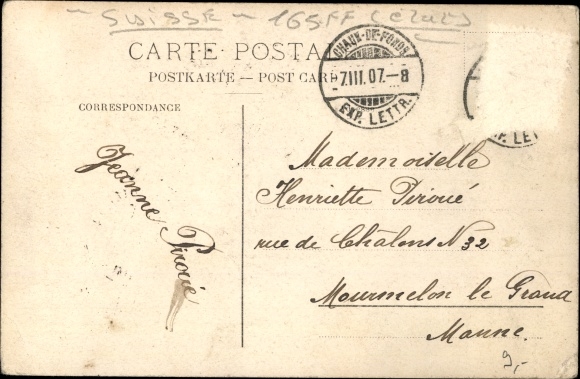 - SUISSE - 165FF
CARTE POSTA
POSTKARTE — POST CARD
CHAUX-DE-FONDS
7.III.07.-8
EXP. LETTR.
P. LET
CORRESPONDANCE
Jeanne Piroué
Mademoiselle
Henriette Piroué
rue de Châlons N 32
Mourmelon le Grand
Marne.
9,-